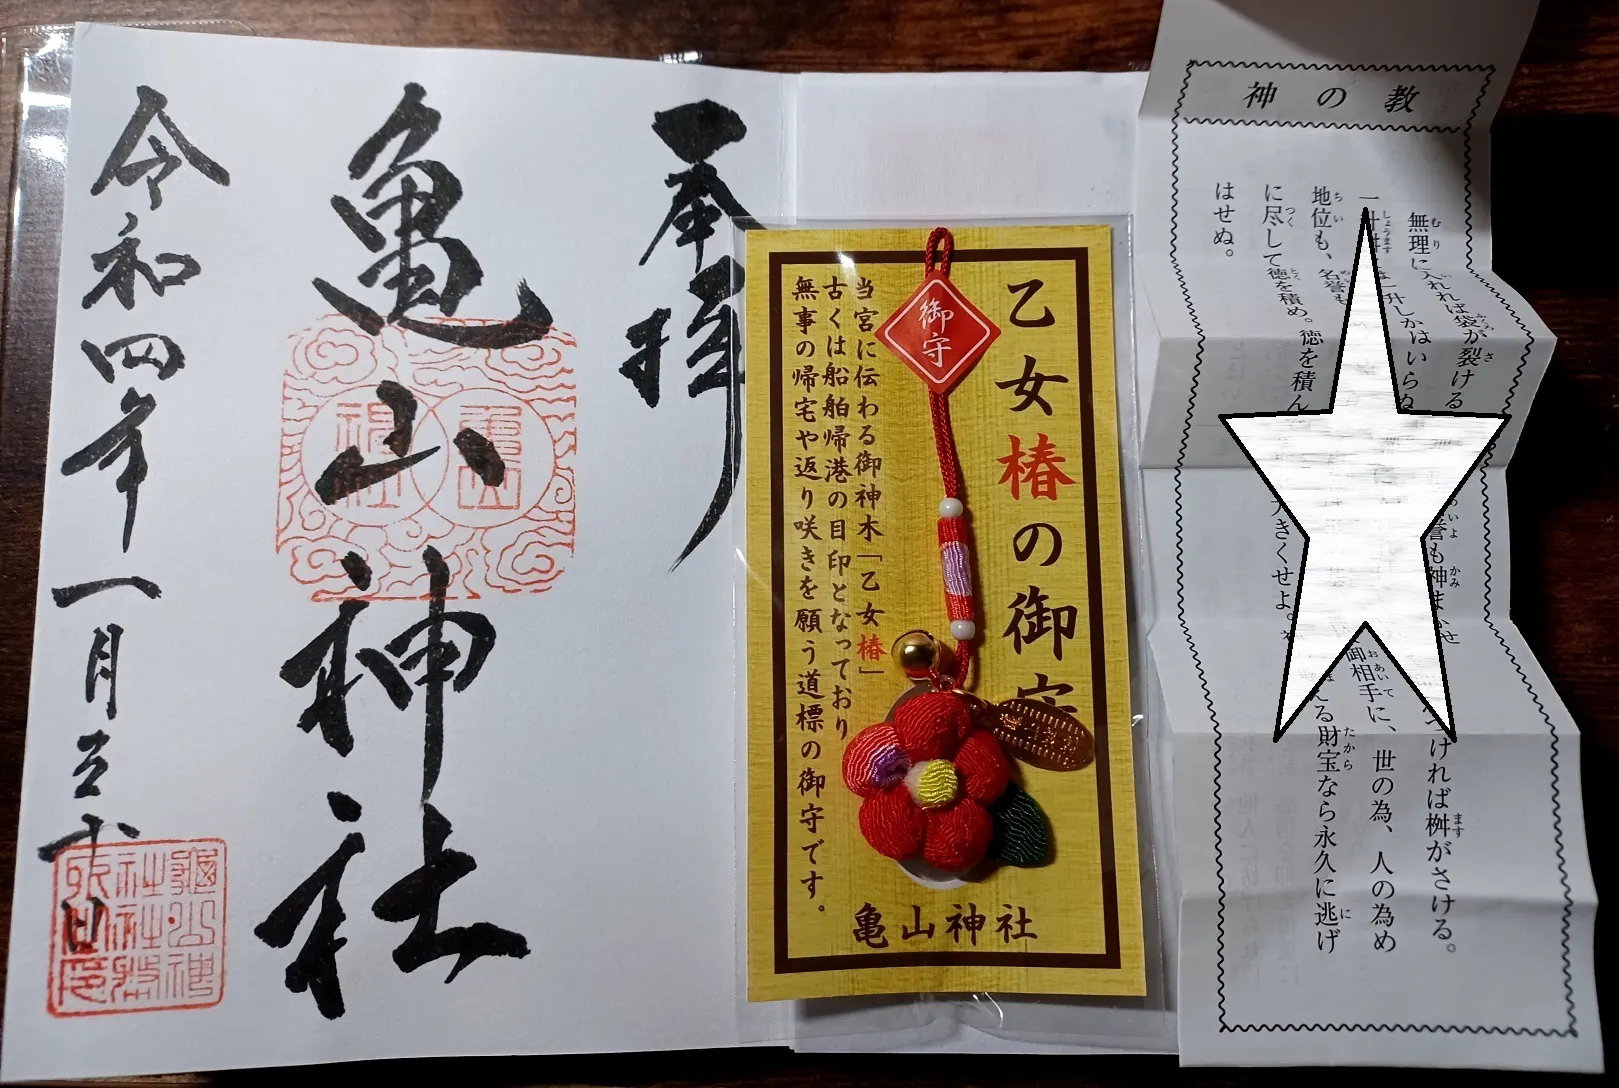 奉拝
亀山神社
令和四年一月三十日
御守
乙女椿の御守
当宮に伝わる御神木「乙女椿」
古くは船舶帰港の目印となっており
無事の帰宅や返り咲きを願う道標の御守です。
亀山神社
神の教
無理に入れれば袋が裂ける 誉も神まかせ
一升 一升しかはいらぬ つければ桝がさける。
地位も、名誉も 御相手に、世の為、人の為め
に尽して徳を積め。徳を積ん きくせよ。 える財宝なら永久に逃げ
はせぬ。